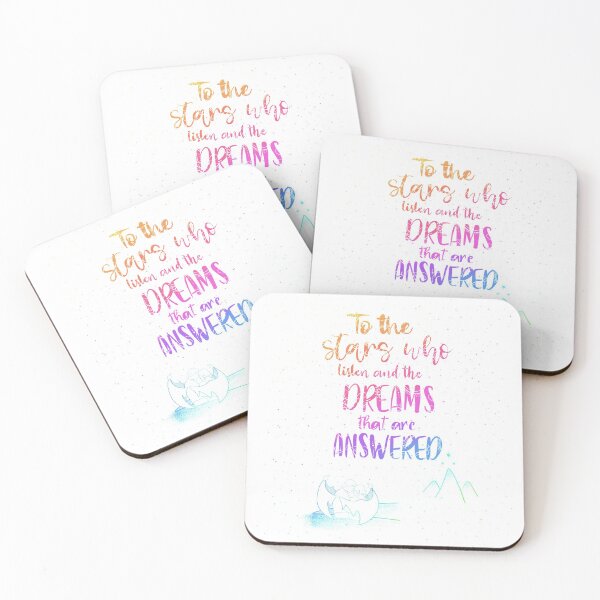 To the
stars who
listen and the
DREAMS
To the
stars who
listen and the
DREAMS
that are
ANSWERED
To the
stars who
listen and the
DREAMS
that are
ANSWERED
To the
stars who
listen and the
DREAMS
that are
ANSWERED